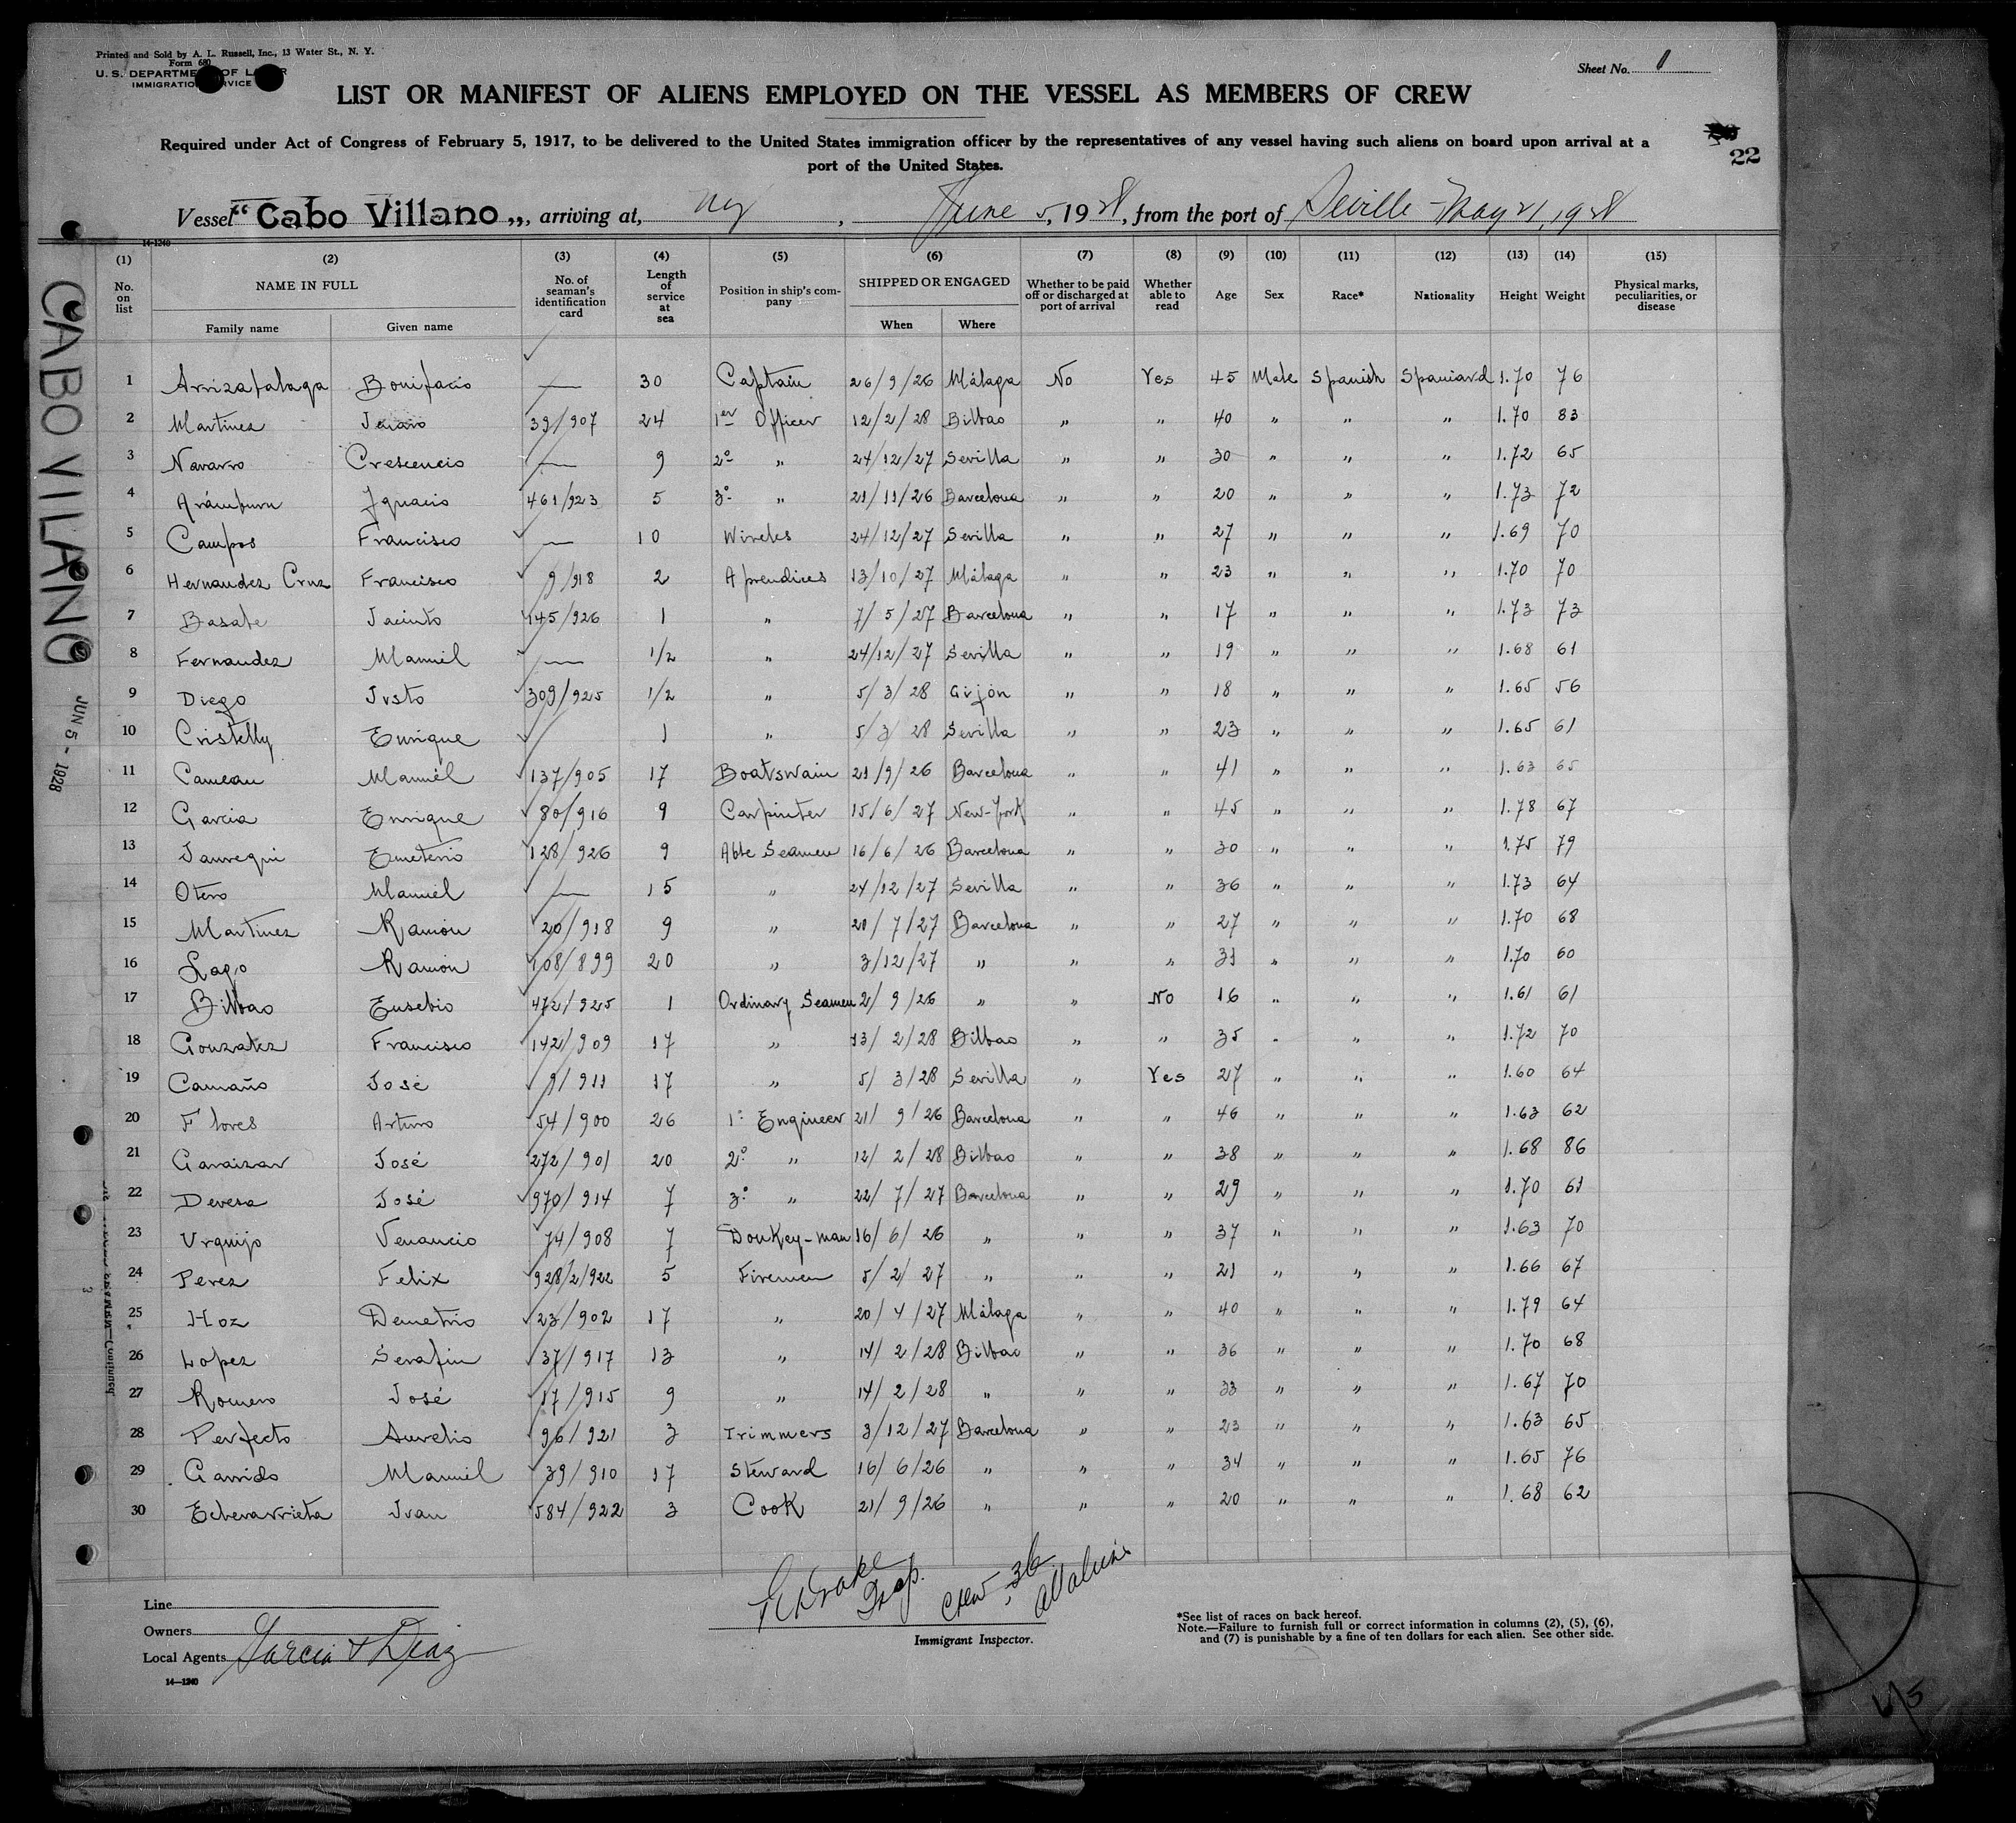 Printed and Sold by A. L. Russell, Inc., 13 Water St., N. Y.
Form 680
U. S. DEPARTMENT OF LABOR
IMMIGRATION SERVICE
Sheet No. 1
LIST OR MANIFEST OF ALIENS EMPLOYED ON THE VESSEL AS MEMBERS OF CREW
Required under Act of Congress of February 5, 1917, to be delivered to the United States immigration officer by the representatives of any vessel having such aliens on board upon arrival at a
port of the United States.
22
Vessel "Cabo Villano", arriving at, NY, June 5, 1928, from the port of Seville - May 21, 1928
14-1240
(1) (2) (3) (4) (5) (6) (7) (8) (9) (10) (11) (12) (13) (14) (15)
No. on list NAME IN FULL Family name Given name No. of seaman's identification card Length of service at sea Position in ship's company SHIPPED OR ENGAGED When Where Whether to be paid off or discharged at port of arrival Whether able to read Age Sex Race* Nationality Height Weight Physical marks, peculiarities, or disease
1 Arrizabalaga Bonifacio — 30 Captain 26/9/26 Málaga No Yes 45 Male Spanish Spaniard 1.70 76
2 Martinez 39/907 24 1er Officer 12/2/28 Bilbao " " 40 " " " 1.70 83
3 Navarro Crescencio — 9 2º " 24/12/27 Sevilla " " 30 " " " 1.72 65
4 Arámburu Ignacio 461/923 5 3º " 21/11/26 Barcelona " " 20 " " " 1.73 72
5 Campos Francisco — 10 Wireles 24/12/27 Sevilla " " 27 " " " 1.69 70
6 Hernandez Cruz Francisco 9/918 2 Aprendices 13/10/27 Málaga " " 23 " " " 1.70 70
7 Basabe Jacinto 145/926 1 " 7/5/27 Barcelona " " 17 " " " 1.73 73
8 Fernandez Manuel — 1/2 " 24/12/27 Sevilla " " 19 " " " 1.68 61
9 Diego Justo 309/925 1/2 " 5/3/28 Gijón " " 18 " " " 1.65 56
10 Cristelly Enrique 1 " 5/3/28 Sevilla " " 23 " " " 1.65 61
11 Camean Manuel 137/905 17 Boatswain 21/9/26 Barcelona " " 41 " " " 1.63 65
12 Garcia Enrique 80/916 9 Carpinter 15/6/27 New-York " " 45 " " " 1.78 67
13 Jauregui Emeterio 128/926 9 Able Seamen 16/6/26 Barcelona " " 30 " " " 1.75 79
14 Otero Manuel — 15 " 24/12/27 Sevilla " " 36 " " " 1.73 64
15 Martinez Ramón 20/918 9 " 20/7/27 Barcelona " " 27 " " " 1.70 68
16 Lago Ramón 108/899 20 " 3/12/27 " " " 31 " " " 1.70 60
17 Bilbao Eusebio 472/925 1 Ordinary Seamen 2/9/26 " " No 16 " " " 1.61 61
18 Gonzalez Francisco 142/909 17 " 13/2/28 Bilbao " " 35 " " " 1.72 70
19 Camaño José 9/911 17 " 5/3/28 Sevilla " Yes 27 " " " 1.60 64
20 Flores Arturo 54/900 26 1º Engineer 21/9/26 Barcelona " " 46 " " " 1.63 62
21 Garaizar José 272/901 20 2º " 12/2/28 Bilbao " " 38 " " " 1.68 86
22 Devesa José 970/914 7 3º " 22/7/27 Barcelona " " 29 " " " 1.70 61
23 Urquijo Venancio 74/908 7 Donkey-man 16/6/26 " " " 37 " " " 1.63 70
24 Perez Felix 928/2/922 5 Firemen 5/2/27 " " " 21 " " " 1.66 67
25 Hoz Demetrio 23/902 17 " 20/4/27 Málaga " " 40 " " " 1.79 64
26 Lopez Serafin 37/917 13 " 14/2/28 Bilbao " " 36 " " " 1.70 68
27 Romero José 17/915 9 " 14/2/28 " " " 33 " " " 1.67 70
28 Perfecto Aurelio 96/921 3 Trimmers 3/12/27 Barcelona " " 23 " " " 1.63 65
29 Garrido Manuel 39/910 17 Steward 16/6/26 " " " 34 " " " 1.65 76
30 Echevarrieta Juan 584/922 3 Cook 21/9/26 " " " 20 " " " 1.68 62
CABO VILANO
JUN 5 - 1928
Line
Owners
Local Agents Garcia & Diaz
14—1240
Drake Insp. Crew - 36
Immigrant Inspector.
*See list of races on back hereof.
Note.—Failure to furnish full or correct information in columns (2), (5), (6),
and (7) is punishable by a fine of ten dollars for each alien. See other side.